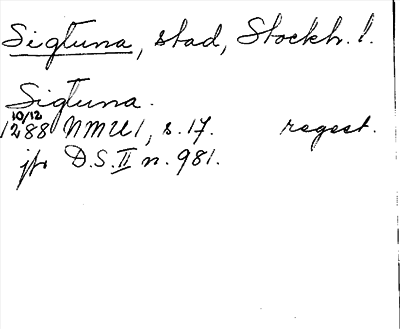 Sigtuna, stad, Stockh. l.
Sigtuna.
10/12
1288 NMU 1, s. 17. regest.
jfr D.S. II n. 981.